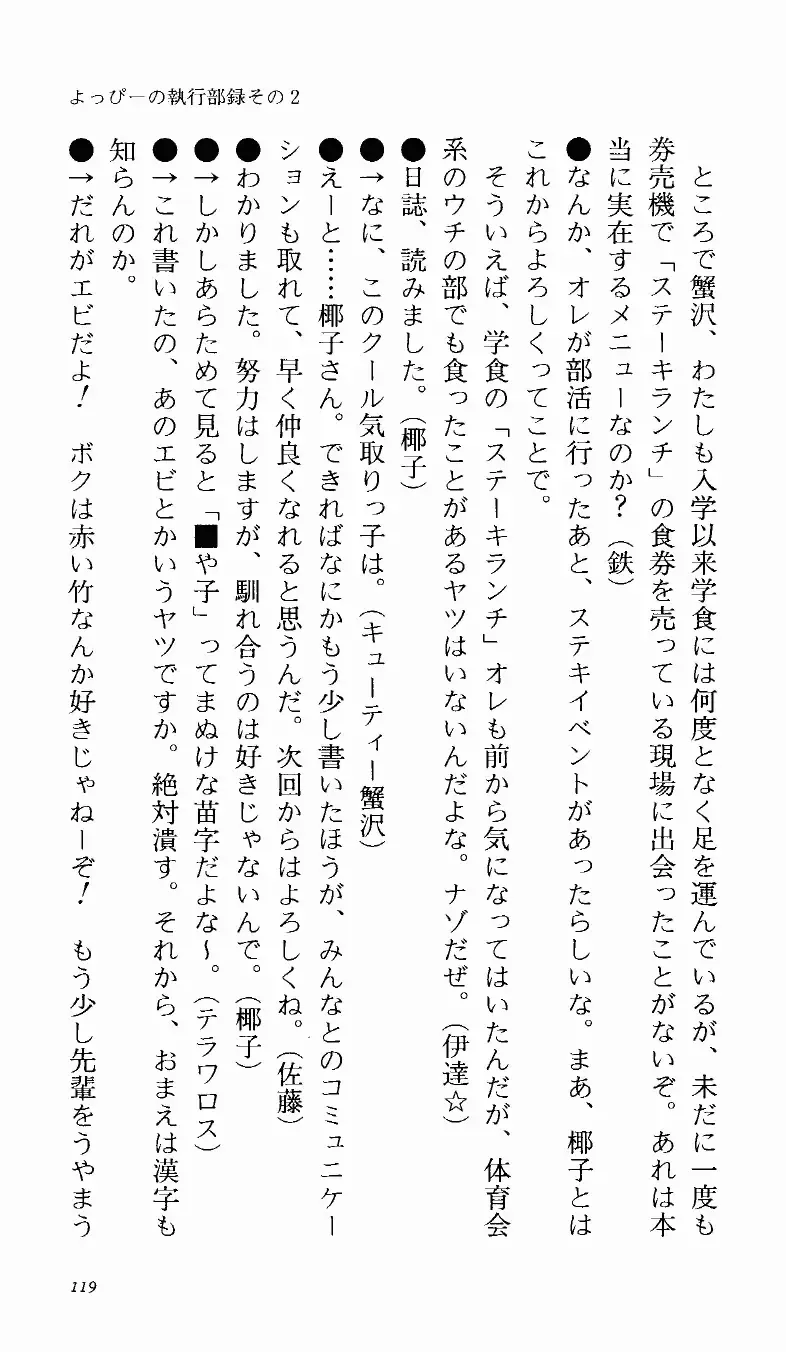 よっぴーの執行部録その2
ところで蟹沢、わたしも入学以来学食には何度となく足を運んでいるが、未だに一度も
券売機で「ステーキランチ」の食券を売っている現場に出会ったことがないぞ。あれは本
当に実在するメニューなのか？（鉄）
●なんか、オレが部活に行ったあと、ステキイベントがあったらしいな。まあ、椰子とは
これからよろしくってことで。
そういえば、学食の「ステーキランチ」オレも前から気になってはいたんだが、体育会
系のウチの部でも食ったことがあるヤツはいないんだよな。ナゾだぜ。（伊達☆）
●日誌、読みました。（椰子）
●→なに、このクール気取りっ子は。（キューティー蟹沢）
●えーと……椰子さん。できればなにかもう少し書いたほうが、みんなとのコミュニケー
ションも取れて、早く仲良くなれると思うんだ。次回からはよろしくね。（佐藤）
●わかりました。努力はしますが、馴れ合うのは好きじゃないんで。（椰子）
●→しかしあらためて見ると「■や子」ってまぬけな苗字だよな〜。（テラワロス）
●→これ書いたの、あのエビとかいうヤツですか。絶対潰す。それから、おまえは漢字も
知らんのか。
●→だれがエビだよ！　ボクは赤い竹なんか好きじゃねーぞ！　もう少し先輩をうやまう
119